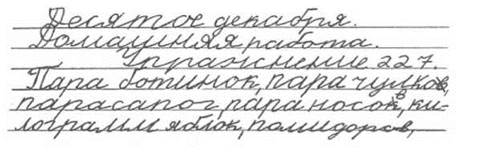 Десятое декабря.
Домашняя работа.
Упражнение 227.
Пара ботинок, пара чулков,
пара сапог, пара носокв, ки-
лограмм яблок, помидоров,